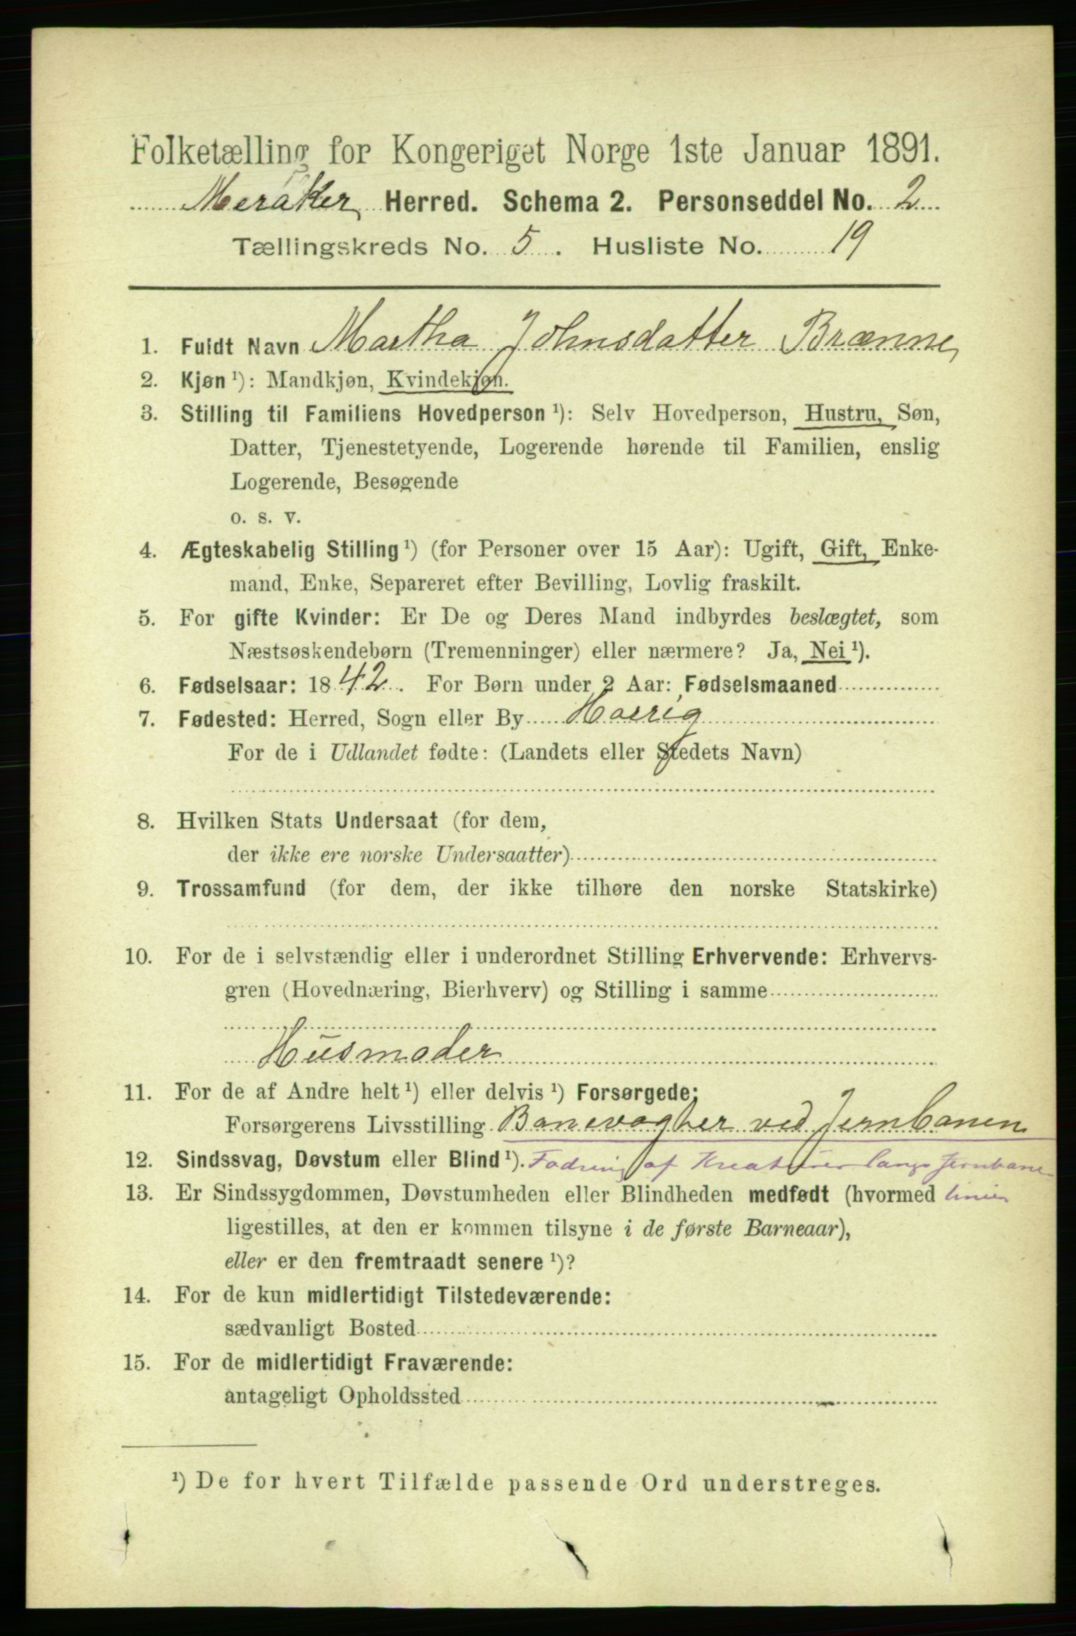 Folketælling for Kongeriget Norge 1ste Januar 1891.
Meråker Herred. Schema 2. Personseddel No. 2
Tællingskreds No. 5. Husliste No. 19
1. Fuldt Navn Martha Johnsdatter Brænne
2. Kjøn ¹): Mandkjøn, Kvindekjøn.
3. Stilling til Familiens Hovedperson ¹): Selv Hovedperson, Hustru, Søn,
Datter, Tjenestetyende, Logerende hørende til Familien, enslig
Logerende, Besøgende
o. s. v.
4. Ægteskabelig Stilling ¹) (for Personer over 15 Aar): Ugift, Gift, Enke-
mand, Enke, Separeret efter Bevilling, Lovlig fraskilt.
5. For gifte Kvinder: Er De og Deres Mand indbyrdes beslægtet, som
Næstsøskendebørn (Tremenninger) eller nærmere? Ja, Nei ¹).
6. Fødselsaar: 1842. For Børn under 2 Aar: Fødselsmaaned
7. Fødested: Herred, Sogn eller By
For de i Udlandet fødte: (Landets eller Stedets Navn)
8. Hvilken Stats Undersaat (for dem,
der ikke ere norske Undersaatter)
9. Trossamfund (for dem, der ikke tilhøre den norske Statskirke)
10. For de i selvstændig eller i underordnet Stilling Erhvervende: Erhvervs-
gren (Hovednæring, Bierhverv) og Stilling i samme
Husmoder
11. For de af Andre helt ¹) eller delvis ¹) Forsørgede:
Forsørgerens Livsstilling Banevogter ved Jernbanen
12. Sindssvag, Døvstum eller Blind ¹). af Kreaturer langs Jernbane
13. Er Sindssygdommen, Døvstumheden eller Blindheden medfødt (hvormed linier
ligestilles, at den er kommen tilsyne i de første Barneaar),
eller er den fremtraadt senere ¹)?
14. For de kun midlertidigt Tilstedeværende:
sædvanligt Bosted
15. For de midlertidigt Fraværende:
antageligt Opholdssted
¹) De for hvert Tilfælde passende Ord understreges.